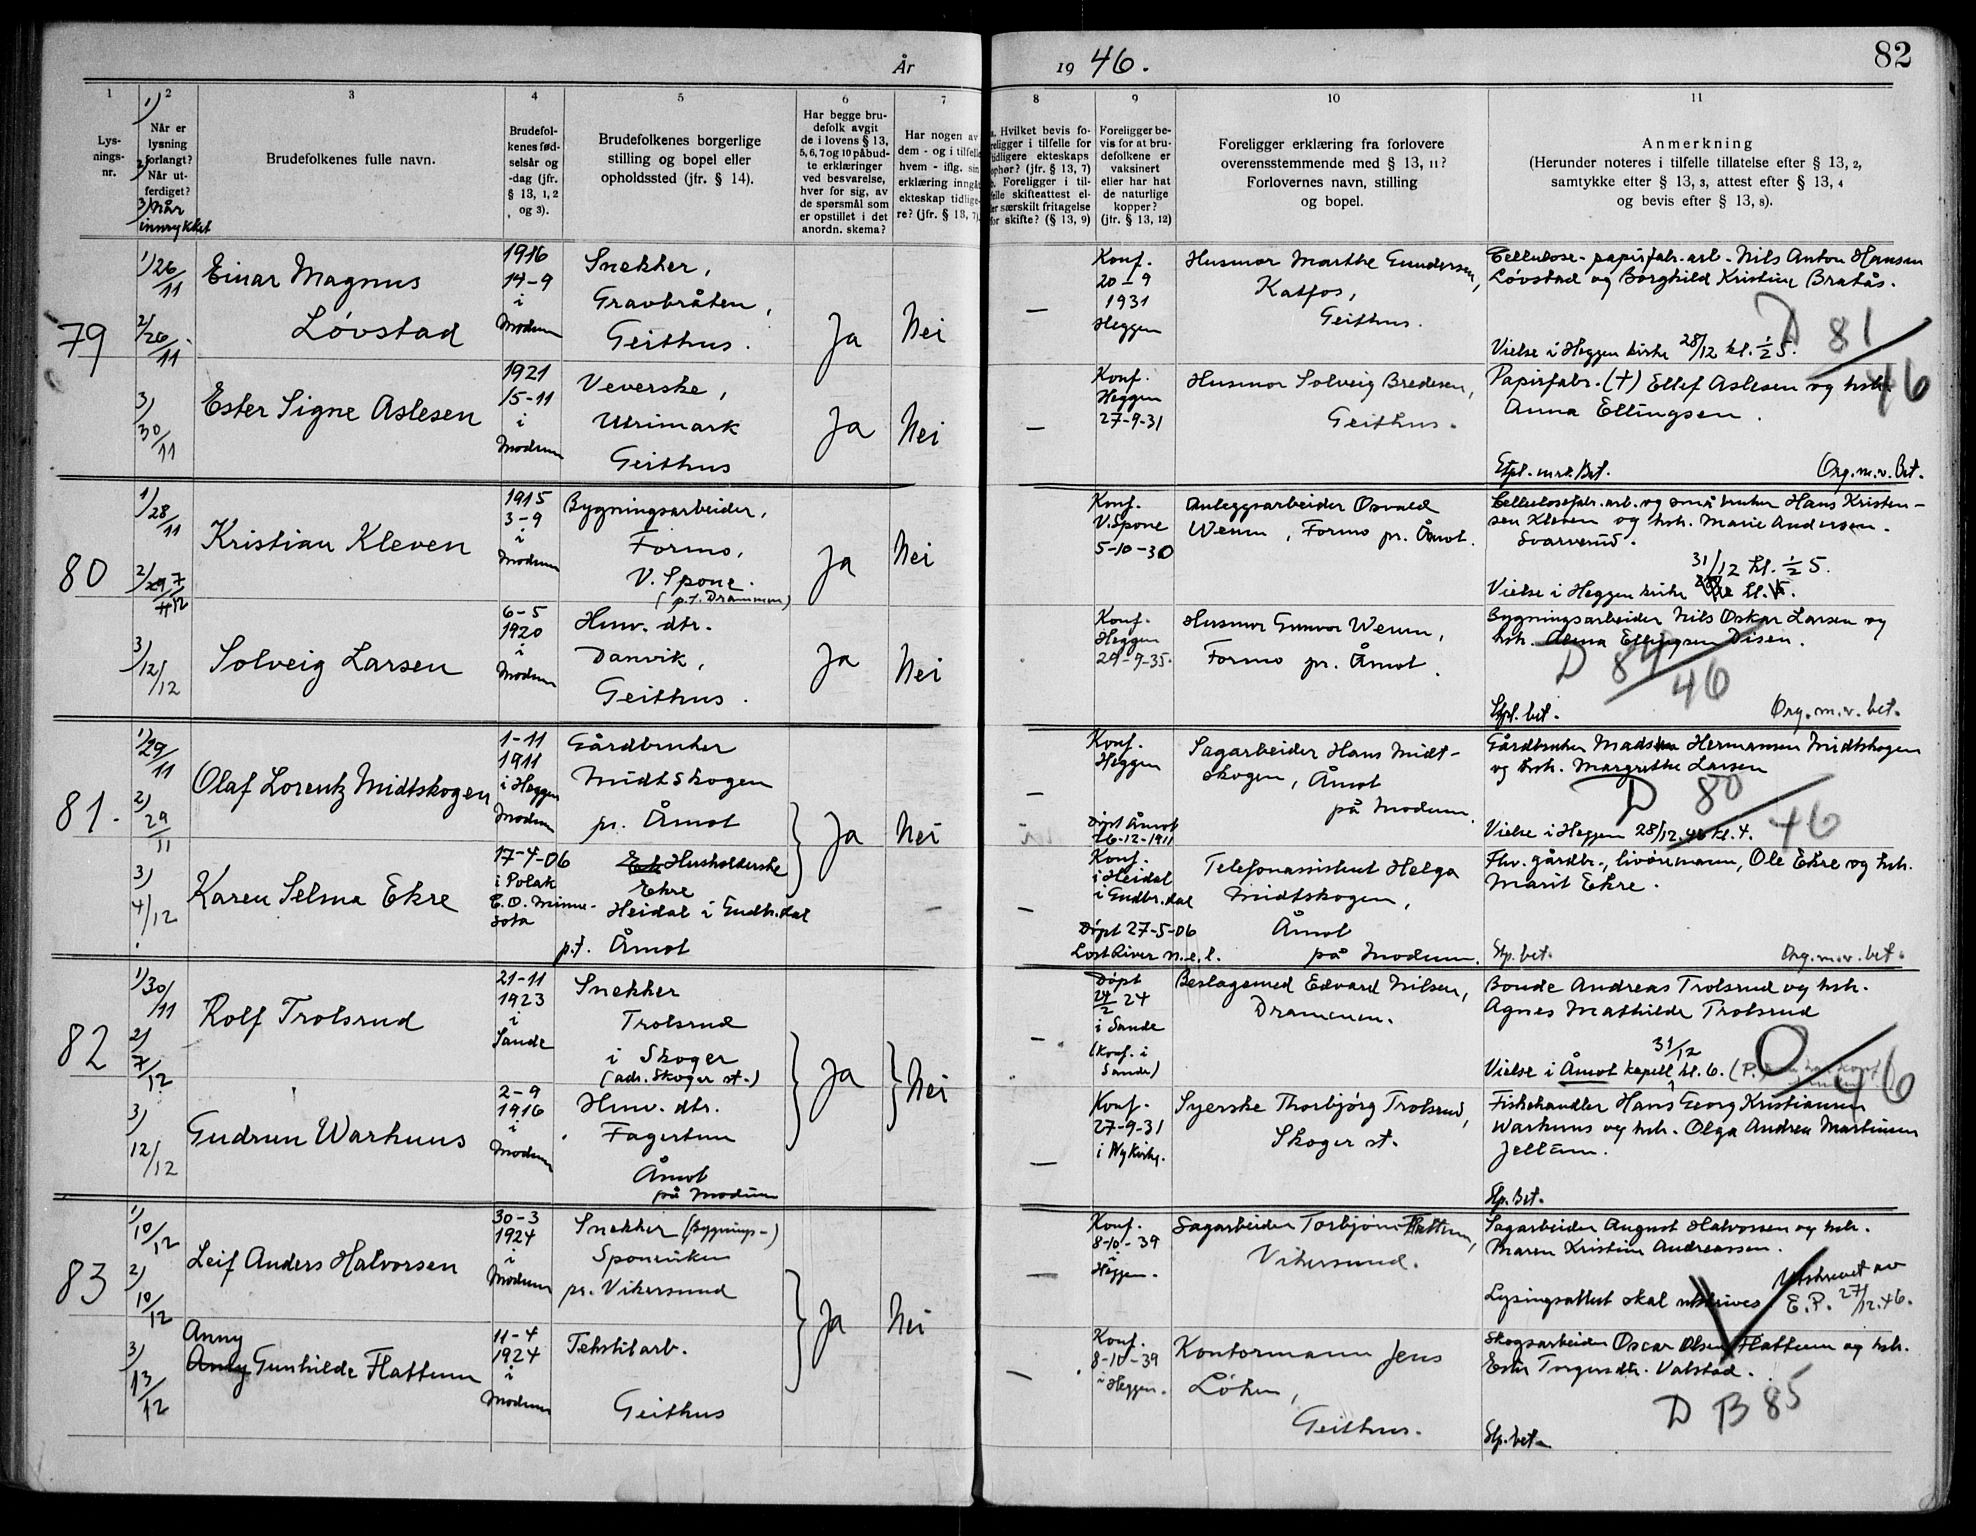 År 1946.
82
1
Lys-
nings-
nr.
2
1)
Når er
lysning
forlangt?
2)
Når ut-
ferdiget?
3) Når
innrykket
3
Brudefolkenes fulle navn.
4
Brudefol-
kenes fød-
selsår og
-dag (jfr.
§ 13, 1, 2
og 3).
5
Brudefolkenes borgerlige
stilling og bopel eller
opholdssted (jfr. § 14).
6
Har begge bru-
defolk avgit
de i lovens § 13,
5, 6, 7 og 10 påbud-
te erklæringer
ved besvarelse,
hver for sig, av
de spørsmål som
er opstillet i det
anordn. skema?
7
Har nogen av
dem - og i tilfelle
hvem - iflg. sin
erklæring inngåt
ekteskap tidlige-
re? (jfr. § 13, 7)
8
a. Hvilket bevis fo-
religger i tilfelle for
tidligere ekteskaps
ophør? (jfr. § 13, 7)
b. Foreligger i til-
felle skifteattest el-
ler særskilt fritagelse
for skifte? (§ 13, 9)
9
Foreligger be-
vis for at bru-
defolkene er
vaksinert
eller har hat
de naturlige
kopper?
(jfr. § 13, 12)
10
Foreligger erklæring fra forlovere
overensstemmende med § 13, 11?
Forlovernes navn, stilling
og bopel.
11
Anmerkning
(Herunder noteres i tilfelle tillatelse efter § 13, 2,
samtykke efter § 13, 3, attest efter § 13, 4
og bevis efter § 13, 8).
79
1) 26/11
2) 26/11
3) 30/11
Einar Magnus
Løvstad
1916
14-9
i
Modum
Snekker,
Gravbråten,
Geithus.
Ja
Nei
—
Konf.
20-9
1931
Heggen
Husmor Marthe Gundersen,
Katfos,
Geithus.
Cellulose- papirfabr.arb. Nils Anton Hansen
Løvstad og Borghild Kristine Bråtås.
Vielse i Heggen kirke 28/12 kl. ½5.
D 81/46
Ester Signe Aslesen
1921
15-11
i
Modum
Veverske,
Utrimark
Geithus
Ja
Nei
—
Konf.
Heggen
27-9-31
Husmor Solveig Bredesen,
Geithus.
Papirfabr. (+) Ellef Aslesen og hstr.
Anna Ellingsen.
Org.m.v. Bet.
80
1) 28/11
3) 12/12
Kristian Kleven
1915
3-9
i
Modum
Bygningsarbeider,
Formo,
V. Spone.
(p.t. Drammen)
Ja
Nei
Konf.
V. Spone
5-10-30
Anleggsarbeider Osvald
Werum, Formo pr. Åmot.
Cellulosefabr.arb. og småbruker Hans Kristen-
sen Kleven og hstr. Marie Andersen
Svarverud.
31/12 kl. ½5.
Vielse i Heggen kirke
Solveig Larsen
6-5
1920
i
Modum
Hmv. dtr.
Danvik,
Geithus.
Ja
Nei
Konf.
Heggen
29-9-35.
Husmor Gunvor Werum,
Formo pr. Åmot.
Bygningsarbeider Nils Oskar Larsen og
hstr. Anna Ellingsen Disen.
D 84/46
Stpl. bet.
Org.m.v. bet.
81.
1) 29/11
2) 29/11
3) 4/12
Olaf Lorentz Midtskogen
1-11
1911
i Heggen
Modum
Gårdbruker
Midtskogen
pr. Åmot
Ja
Nei
—
Konf.
Heggen
Døpt Åmot
26-12-1911
Sagarbeider Hans Midt-
skogen, Åmot
på Modum.
Gårdbruker Mads Hermansen Midtskogen
og hstr. Margrethe Larsen
D 80/46
Vielse i Heggen 28/12.46 kl. 4.
Karen Selma Ekre
17-4-06
i Polak
C.O. Minne-
sota
Husholderske
Ekre
Heidal i Gudbr.dal
p.t. Åmot
—
Konf.
i Heidal
i Gudbr.dal
Døpt 27-5-06
Lost River n.e.l.
Telefonassistent Helga
Midtskogen,
Åmot
på Modum.
Fhv. gårdbr., livøremann, Ole Ekre og hstr.
Marit Ekre.
Stp. bet.
Org.m.v. bet.
82
1) 30/11
2) 7/12
3) 12/12
Rolf Trolsrud
21-11
1923
i
Sande
Snekker
Trolsrud
i Skoger
(adr. Skoger st.)
Ja
Nei
—
Døpt
24/2 24
i Sande
(Konf. i
Sande)
Beslagsmed Edvard Nilsen,
Drammen.
Bonde Andreas Trolsrud og hstr.
Agnes Mathilde Trolsrud
31/12
Vielse i Åmot kapell kl. 6.
Gudrun Warhuus
2-9
1916
i
Modum
Hmv. dtr.
Fagertun
Åmot
på Modum
—
Konf.
27-9-31
i Nykirke.
Syerske Thorbjørg Trolsrud,
Skoger st.
Fiskehandler Hans Georg Kristiansen
Warhuus og hstr. Olga Andrea Martinsen
Jellum.
Stp. Bet.
83
1) 10/12
2) 10/12
3) 13/12
Leif Anders Halvorsen
30-3
1924
i
Modum
Snekker (Bygnings-)
Sponeviken
pr. Vikersund
Ja
Nei
—
Konf.
8-10-39
i
Heggen.
Sagarbeider Torbjørn Flattum,
Vikersund.
Sagarbeider August Halvorsen og hstr.
Maren Kristine Andreassen.
Lysingsattest skal utskrives. Utskrevet av
E.P. 27/12.46.
Anny
Gunhilde Flattum
11-4
1924
i
Modum
Tekstilarb.
Geithus
—
Konf.
8-10-39
i Heggen.
Kontormann Jens
Løken,
Geithus.
Skogsarbeider Oscar Olsen Flattum og hstr.
Ester Torgersdtr. Valstad.
D B 85
Stp. bet.